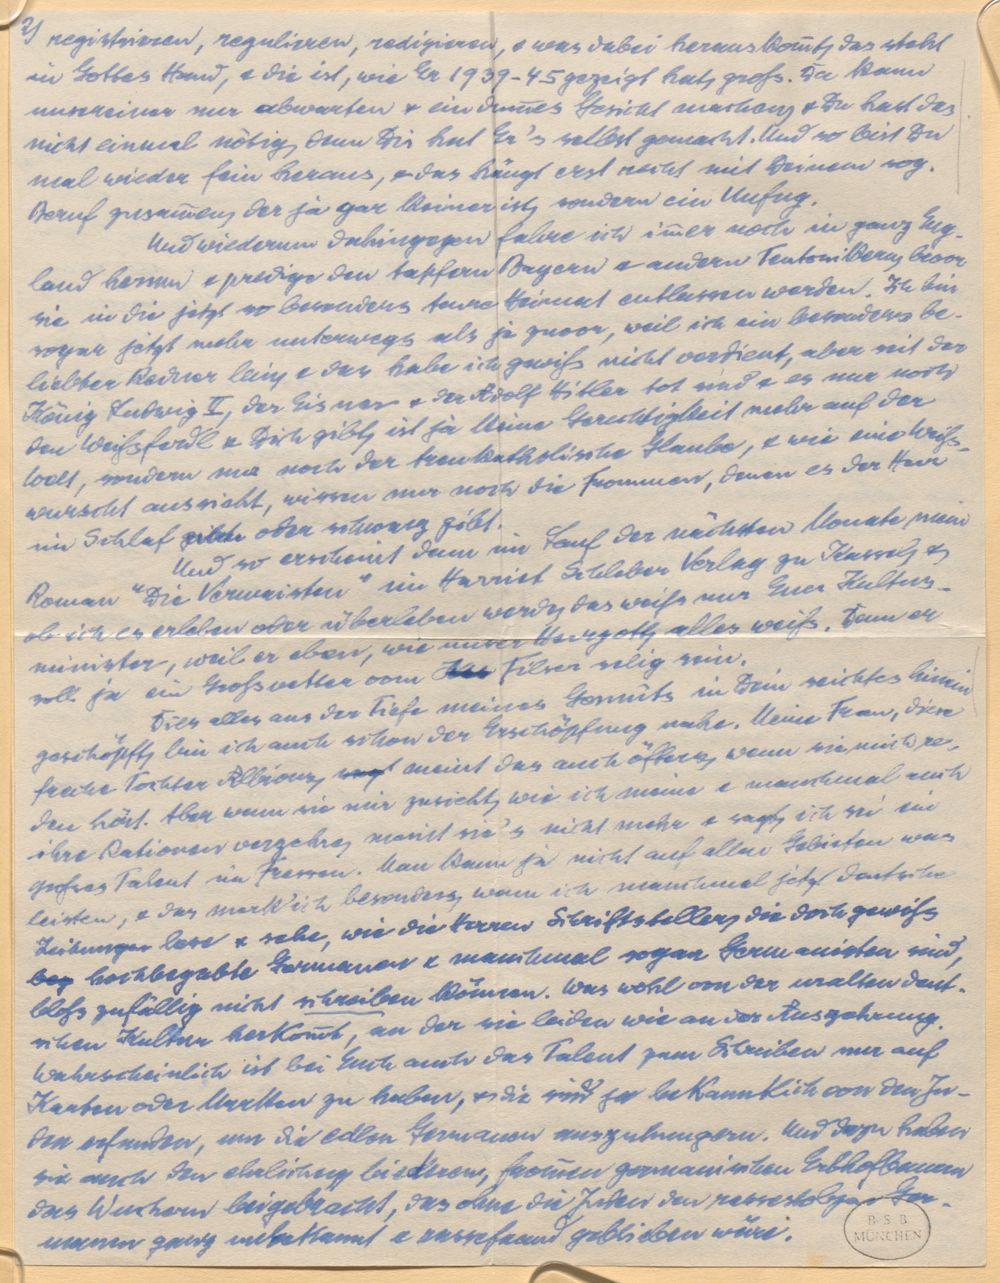 2)
registrieren, regulieren, redigieren, & was dabei herauskom̅t, das steht
in Gottes Hand, & die ist, wie Er 1939-45 gezeigt hat, gross. Da kann
unsereiner nur abwarten & ein dum̅es Gesicht machen, & Du hast das
nicht einmal nötig, denn Dir hat Er's selbst gemacht. Und so bist Du
mal wieder fein heraus, & das hängt erst recht mit Deinem sog.
Beruf zusam̅en, der ja gar keiner ist, sondern ein Unfug.
Und wiederum dahingegen fahre ich im̅er noch in ganz Eng-
land herum & predige den tapfern Bayern & andern Teutonikern, bevor
sie in die jetzt so besonders teure Heimat entlassen werden. Ich bin
sogar jetzt mehr unterwegs als je zuvor, weil ich ein besonders be-
liebter Redner bin, & das habe ich gewiss nicht verdient, aber seit der
König Ludwig II, der Eisner & der Adolf Hitler tot sind & es nur noch
den Weissferdl & Dich gibt, ist ja keine Gerechtigkeit mehr auf der
Welt, sondern nur noch der treukatholische Glaube, & wie eine Weiss-
wurscht aussieht, wissen nur noch die Frommen, denen es der Herr
im Schlaf oder schwarz gibt.
Und so erscheint denn im Lauf der nächsten Monate mein
Roman "Die Verwaisten" im Harriet Schleber Verlag zu Kassel, &
ob ich es erleben oder überleben werde, das weiss nur Euer Kultus-
minister, weil er eben, wie unser Herrgott, alles weiss. Denn er
soll ja ein Grossvetter vom Filser selig sein.
Dies alles aus der Tiefe meines Gemüts in Dein seichtes hinein
geschöpft, bin ich auch schon der Erschöpfung nahe. Meine Frau, diese
freche Tochter Albions, meint das auch öfters, wenn sie mich re-
den hört. Aber wenn sie mir zusieht, wie ich meine & manchmal auch
ihre Rationen verzehre, meint sie's nicht mehr & sagt, ich sei ein
grosses Talent im Fressen. Man kann ja nicht auf allen Gebieten was
leisten, & das merk' ich besonders, wenn ich manchmal jetzt deutsche
Zeitungen lese & sehe, wie die Herren Schriftsteller, die doch gewiss
hochbegabte Germanen & manchmal sogar Germanisten sind,
bloss zufällig nicht schreiben können. Was wohl von der uralten deut-
schen Kultur herkom̅t, an der sie leiden wie an der Auszehrung.
Wahrscheinlich ist bei Euch auch das Talent zum Schreiben nur auf
Karten oder Marken zu haben, & die sind ja bekanntlich von den Ju-
den erfunden, um die edlen Germanen auszuhungern. Und dazu haben
sie auch den ehrlichen, biederen, from̅en germanischen Erbhofbauern
das Wuchern beigebracht, das ohne die Juden den rassestolzen Ger-
manen ganz unbekannt & rassefremd geblieben wäre.
B·S·B
MÜNCHEN